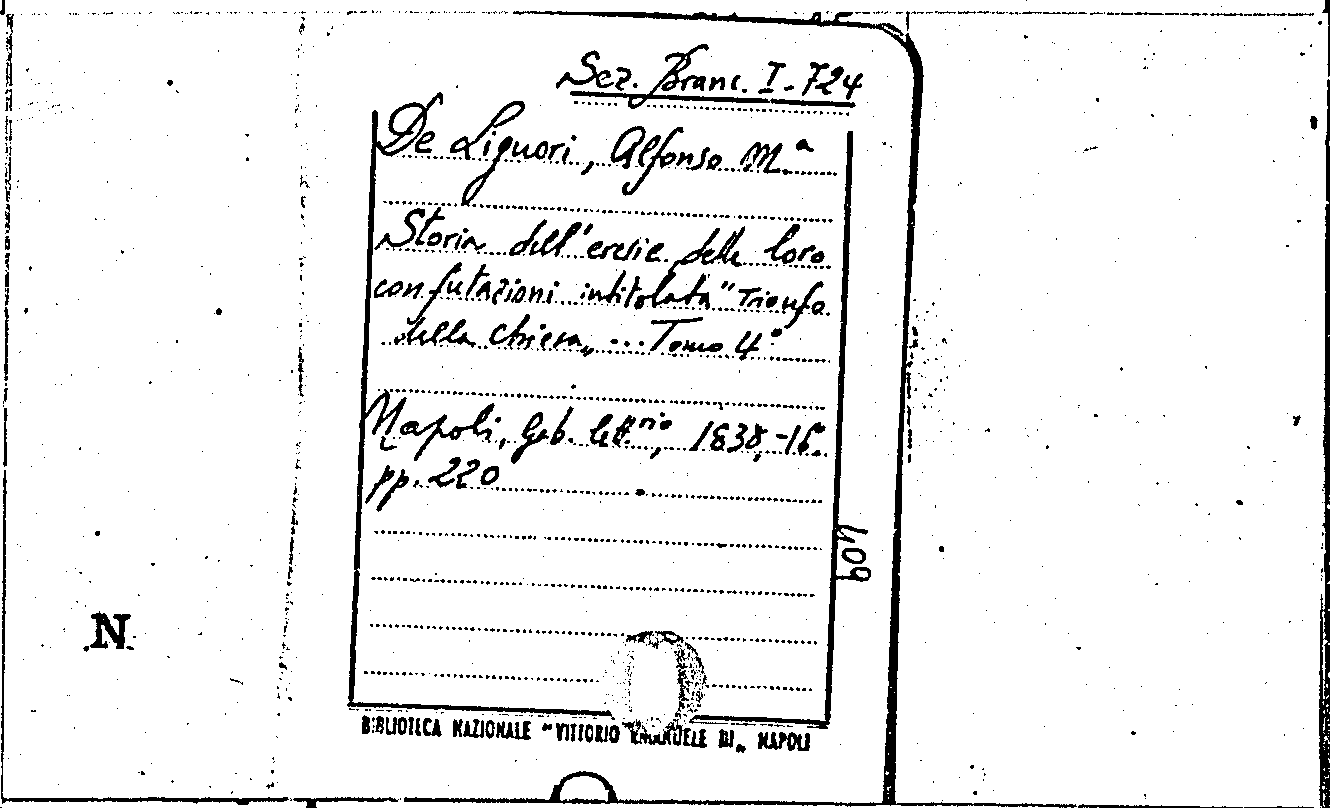 Sez. Branc. I-724
De Liguori, Alfonso M.ª
Storia dell'eresie delle loro
confutazioni intitolata "Trionfo
della Chiesa„ ... Tomo 4°
Napoli, Gab. lett.rio, 1838,-16°.
pp. 220
409
N
BIBLIOTECA NAZIONALE "VITTORIO EMANUELE III„ NAPOLI